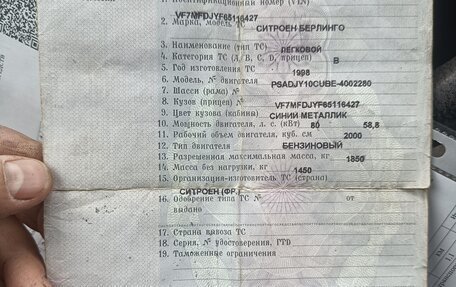 1. Идентификационный номер (VIN)
VF7MFDJYF65116427
2. Марка, модель ТС СИТРОЕН БЕРЛИНГО
3. Наименование (тип ТС) ЛЕГКОВОЙ
4. Категория ТС (A, B, C, D, прицеп) B
5. Год изготовления ТС 1998
6. Модель, № двигателя PSADJY10CUBE-4002280
7. Шасси (рама) №
8. Кузов (прицеп) № VF7MFDJYF65116427
9. Цвет кузова (кабины) СИНИЙ МЕТАЛЛИК
10. Мощность двигателя, л. с. (кВт) 80 58,8
11. Рабочий объем двигателя, куб. см 2000
12. Тип двигателя БЕНЗИНОВЫЙ
13. Разрешенная максимальная масса, кг 1850
14. Масса без нагрузки, кг 1450
15. Организация-изготовитель ТС (страна)
СИТРОЕН (ФР.)
16. Одобрение типа ТС № от
выдано
17. Страна вывоза ТС
18. Серия, № удостоверения, ГТD
19. Таможенные ограничения